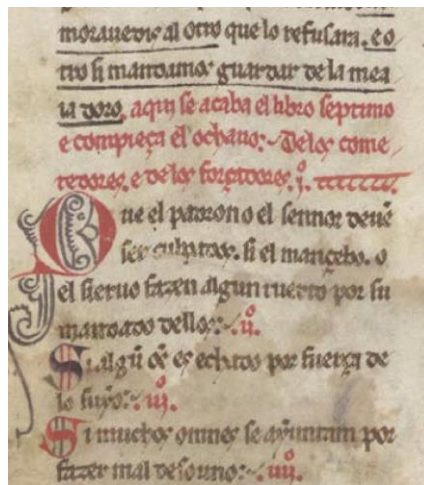 morauedis al otro que lo refusara. e o
tro si mandamos guardar de la mea
ia doro. aqui se acaba el libro septimo
e compieça el ochauo: De los come
tedores. e de los forçadores. i.º
Que el padron o el sennor deuẽ
ser culpados. si el mançebo. o
el sieruo fazen algun tuerto por su
mandado dellos: .ii.º
Si algũ oẽ es echado por fuerça de
lo suyo: .iii.º
Si muchos omnes se ayuntam por
fazer mal de souno: .iiii.º